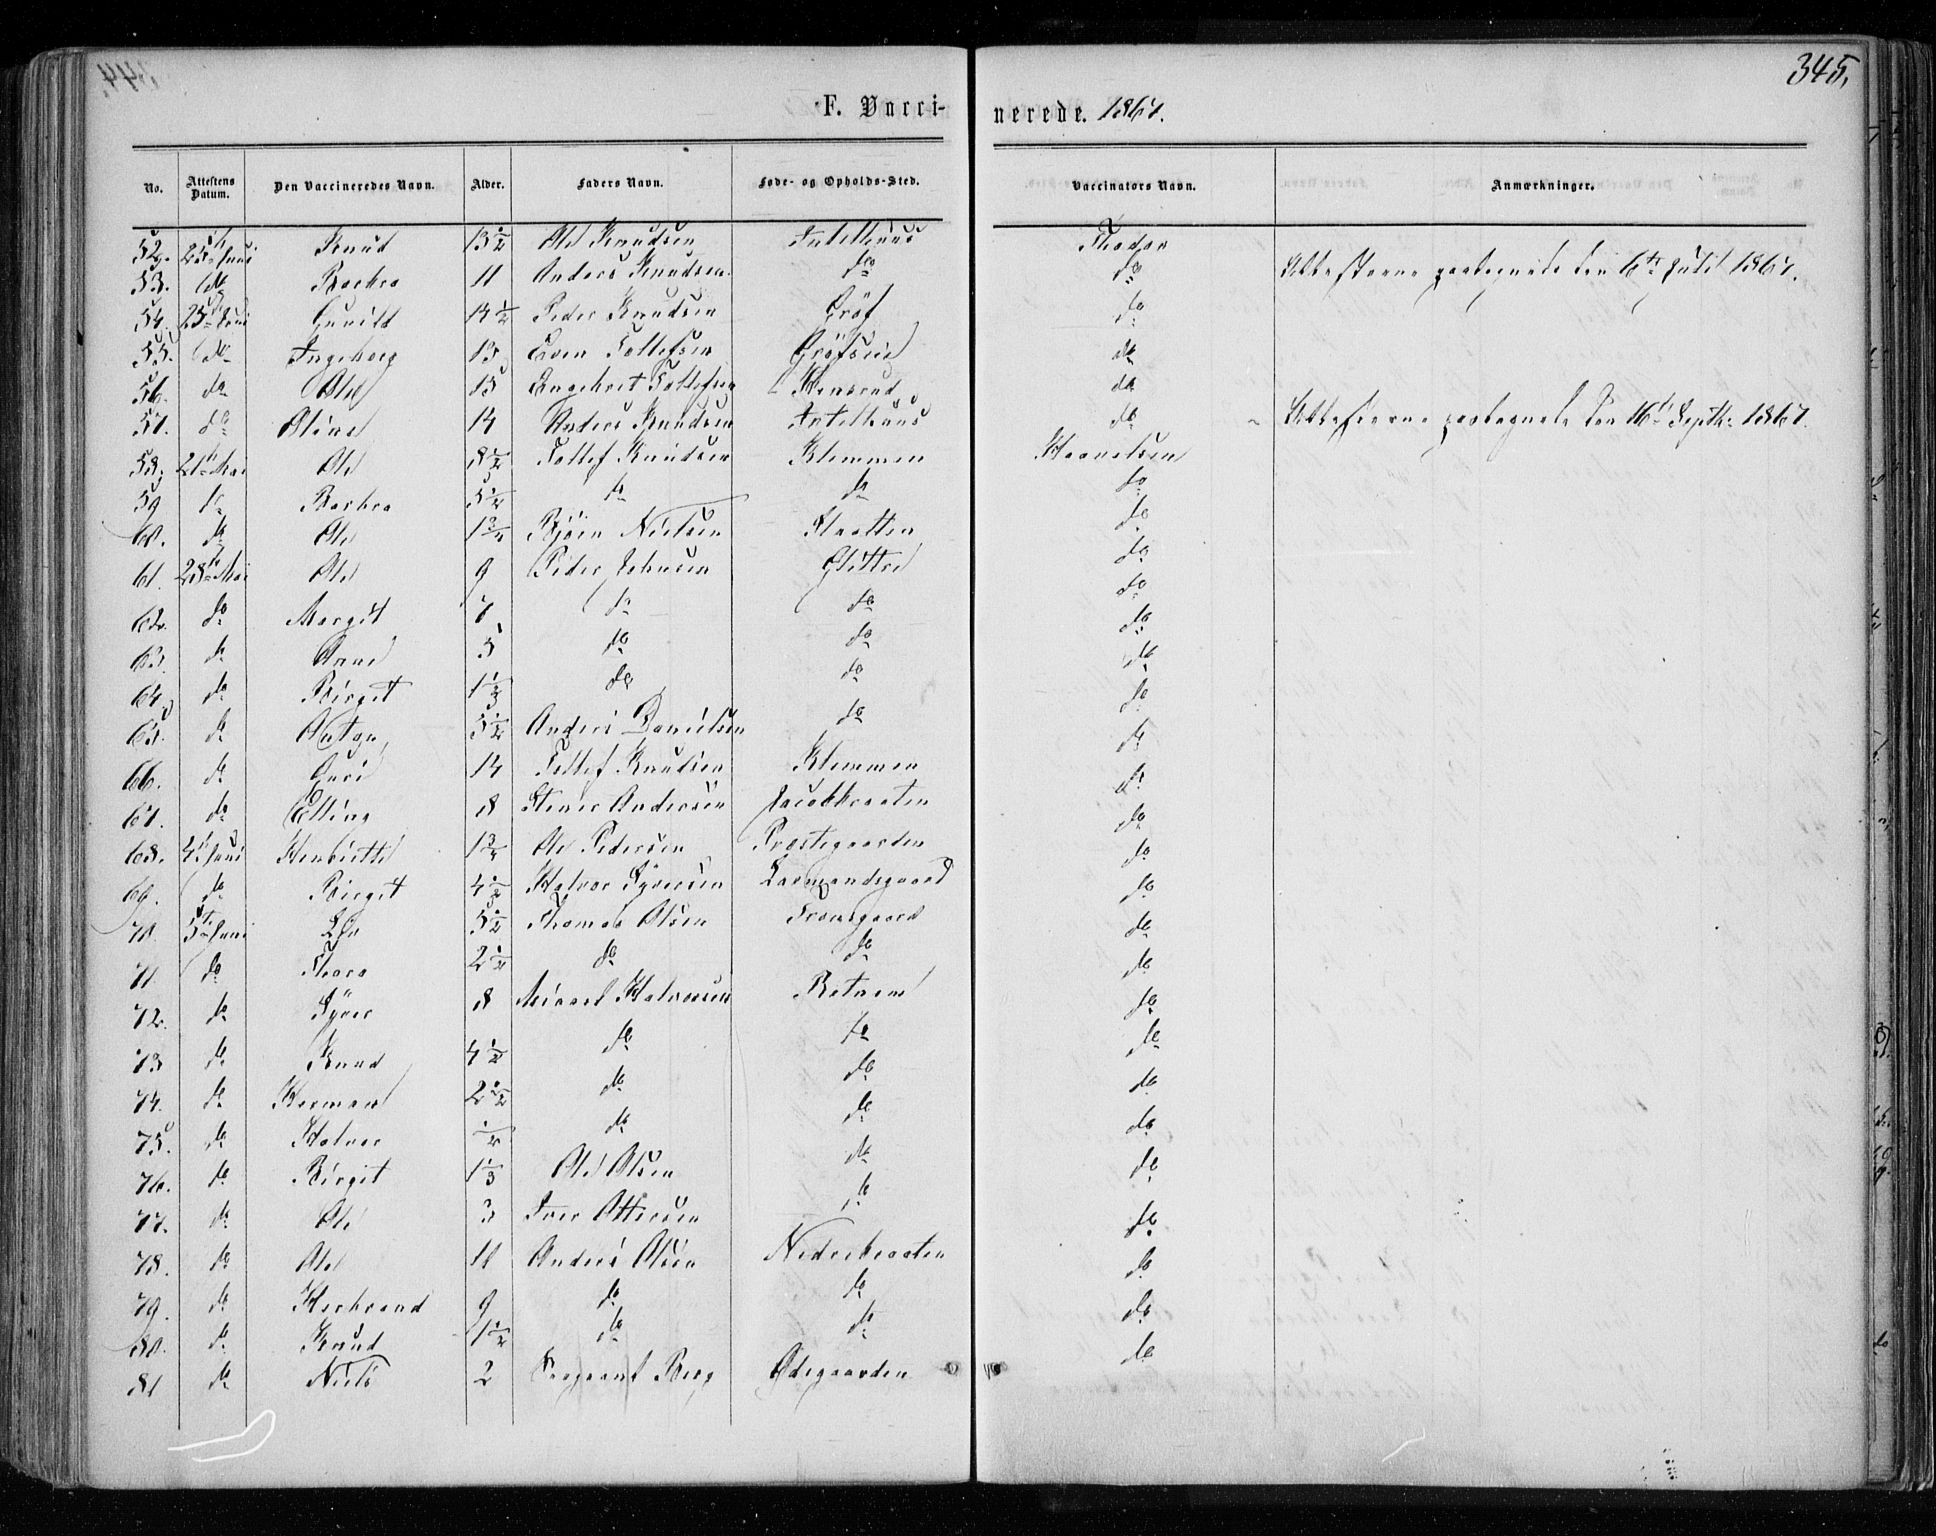 345.
F. Vaccinerede. 1867.
No. Attestens Datum. Den Vaccineredes Navn. Alder. Faders Navn. Føde- og Opholds-Sted. Vaccinators Navn. Anmærkninger.
52. 25de Juni Knud 13 1/2 Ole Knudsen
53. do Barbra 11 Anders Knudsen do do Attesterne paategnede den 6te Juli 1867.
54. 25de Juni Gunild 14 1/2 Peder Knudsen Gröf do
55. do Ingeborg 13 Even Tollefsen Gröfseie do
56. do Ole 15 Engebret Tollefsen do
57. do Oline 14 Anders Knudsen do Attesterne paategnede den 16de Septbr 1867.
58. 21de Mai Ole 8 1/2 Tollef Knudsen Klemmen
59 do Barbra 5 1/2 do do do
60. do Ole 1 3/4 Björn Nielsen Slaatten do
61. 28de Mai Ole 9 Peder Johnsen Glittre do
62. do Margit 7 do do do
63. do Anne 5 do do do
64. do Birgit 1 1/3 do do do
65. do 5 1/2 Anders Danielsen do do
66. do Guri 14 Tollef Knudsen Klemmen do
67. do Elling 8 Stener Andersen Jacobbraaten do
68. 4de Juni Henriette 1 3/4 Ole Pedersen Præstegaarden do
69. do Birgit 4 1/2 Halvor Syversen do
70. 5te Juni 5 1/2 Thomas Olsen do
71. do Thora 2 1/2 do do do
72. do Syver 8 Halvorsen do
73 do Knud 4 1/2 do do do
74. do Herman 2 1/2 do do do
75. do Halvor do do do
76. do Birgit 1 1/3 Ole Olsen do do
77. do Ole 3 Iver Ottersen do do
78. do Ole 11 Anders Olsen Nederbraaten do
79. do Herbrand 9 do do do
80. do Knud 1 1/2 do do do
81 do Niels 2 Sergeant Berg Ødegaarden do